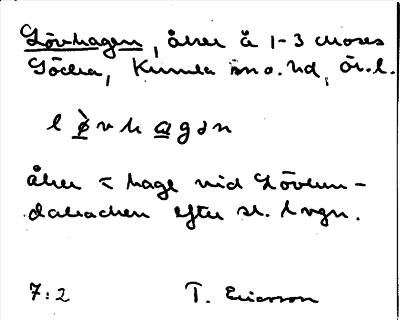 Lövhagen, åker å 1-3 choses
Södra, Kumla sn o. hd, Ör. l.
l ø̀ v h a g ə n
åker < hage vid Lövlun-
dabacken efter st. l vgn.
7:2 T. Ericsson